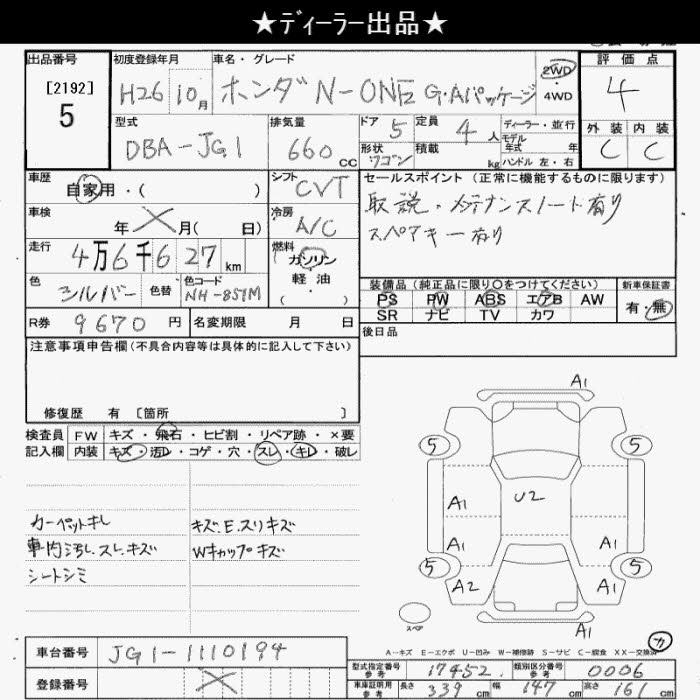 ★ディーラー出品★
出品番号
[2192]
5
初度登録年月
H26 10月
車名・グレード
ホンダ N-ONE G・Aパッケージ
2WD
4WD
評価点
4
外装 内装
C C
型式
DBA-JG1
排気量
660 CC
ドア 5
定員 4人
形状 ワゴン
積載 kg
ディーラー・並行
モデル年式 年
ハンドル 左・右
車歴
自家用・( )
シフト CVT
車検
年 ╳ 月( 日)
冷房 A/C
走行
4万6千627km
燃料
ガソリン
軽油
( ・ )
色
シルバー
色替
色コード
NH-857M
R券 9670円
名変期限 月 日
セールスポイント (正常に機能するものに限ります)
取説・メンテナンスノート有り
スペアキー有り
装備品(純正品に限り○をつけてください)
PS PW ABS エアB AW
SR ナビ TV カワ
新車保証書
有・無
後日品
注意事項申告欄(不具合内容等は具体的に記入して下さい)
修復歴 有 [箇所 ]
検査員記入欄
FW キズ・飛石・ヒビ割・リペア跡・×要
内装 キズ・汚レ・コゲ・穴・スレ・キレ・破レ
カーペットキレ
車内汚レ.スレ.キズ
シートシミ
キズ.E.スリキズ
Wキャップキズ
A1
5 5
U2
A1
A1 A1
5 5
A2 A1
A1
スペア
A-キズ E-エクボ U-凹み W-補修跡 S-サビ C-腐食 XX-交換済
カ
車台番号 JG1-1110194
登録番号 ╳
型式指定番号 参考 17452
類別区分番号 参考 0006
車庫証明用 参考 長さ 339cm 幅 147cm 高さ 161cm